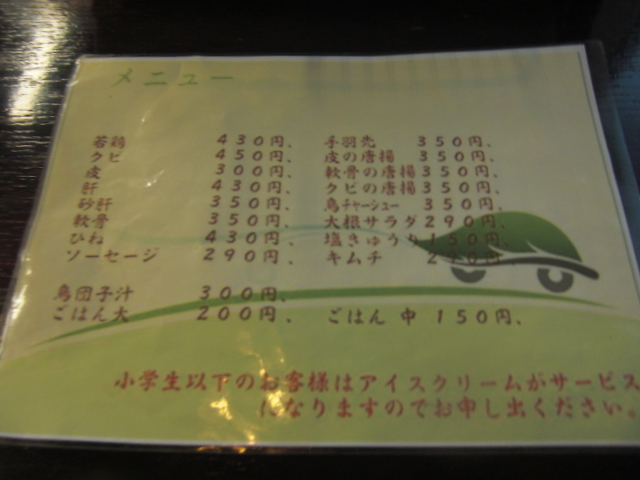 メニュー
若鶏 430円、 手羽先 350円、
クビ 450円、 皮の唐揚 350円、
皮 300円、 軟骨の唐揚350円、
肝 430円、 クビの唐揚350円、
砂肝 350円、 鳥チャーシュー 350円、
軟骨 350円、 大根サラダ290円、
ひね 430円、 塩きゅうり150円、
ソーセージ 290円、 キムチ 290円、
鳥団子汁 300円、
ごはん大 200円、 ごはん 中 150円、
小学生以下のお客様はアイスクリームがサービス
になりますのでお申し出ください。